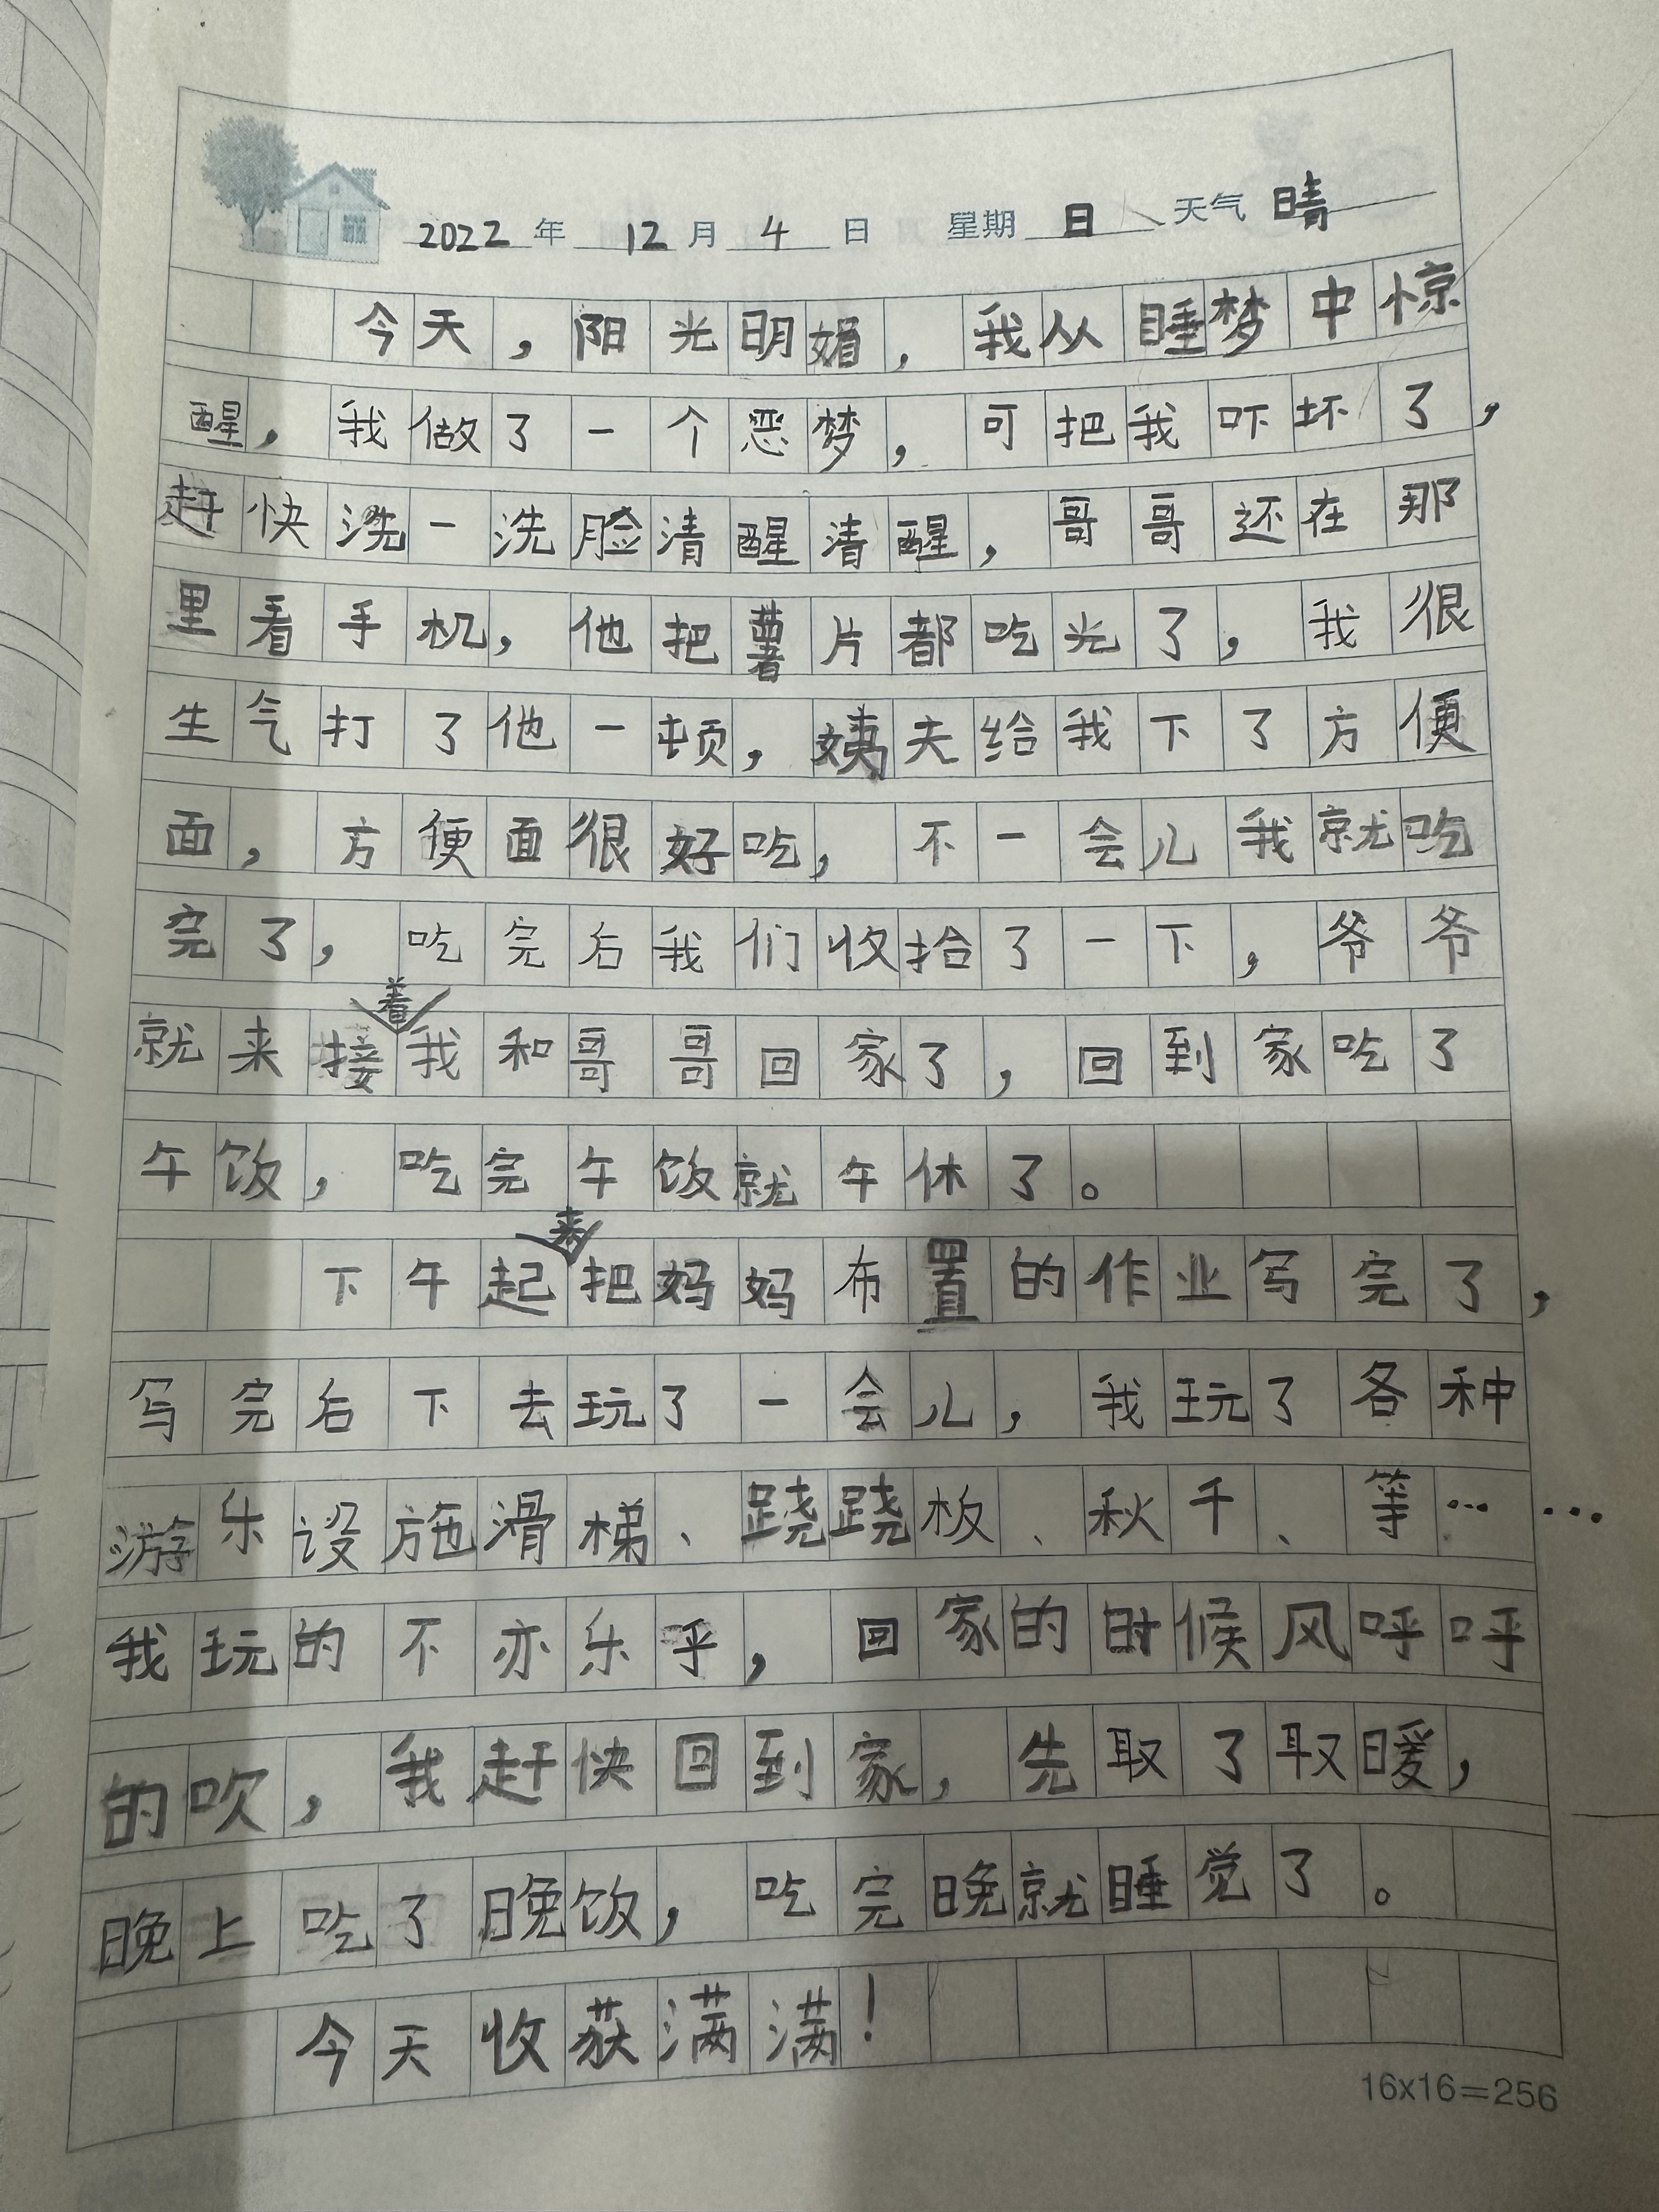 2022年 12月 4日 星期日 天气 晴
今天，阳光明媚，我从睡梦中惊
醒，我做了一个恶梦，可把我吓坏了，
赶快洗一洗脸清醒清醒，哥哥还在那
里看手机，他把薯片都吃光了，我很
生气打了他一顿，姨夫给我下了方便
面，方便面很好吃，不一会儿我就吃
完了，吃完后我们收拾了一下，爷爷
就来接着我和哥哥回家了，回到家吃了
午饭，吃完午饭就午休了。
下午起来把妈妈布置的作业写完了，
写完后下去玩了一会儿，我玩了各种
游乐设施滑梯、跷跷板、秋千、等……
我玩的不亦乐乎，回家的时候风呼呼
的吹，我赶快回到家，先取了取暖，
晚上吃了晚饭，吃完晚就睡觉了。
今天收获满满！
16x16=256